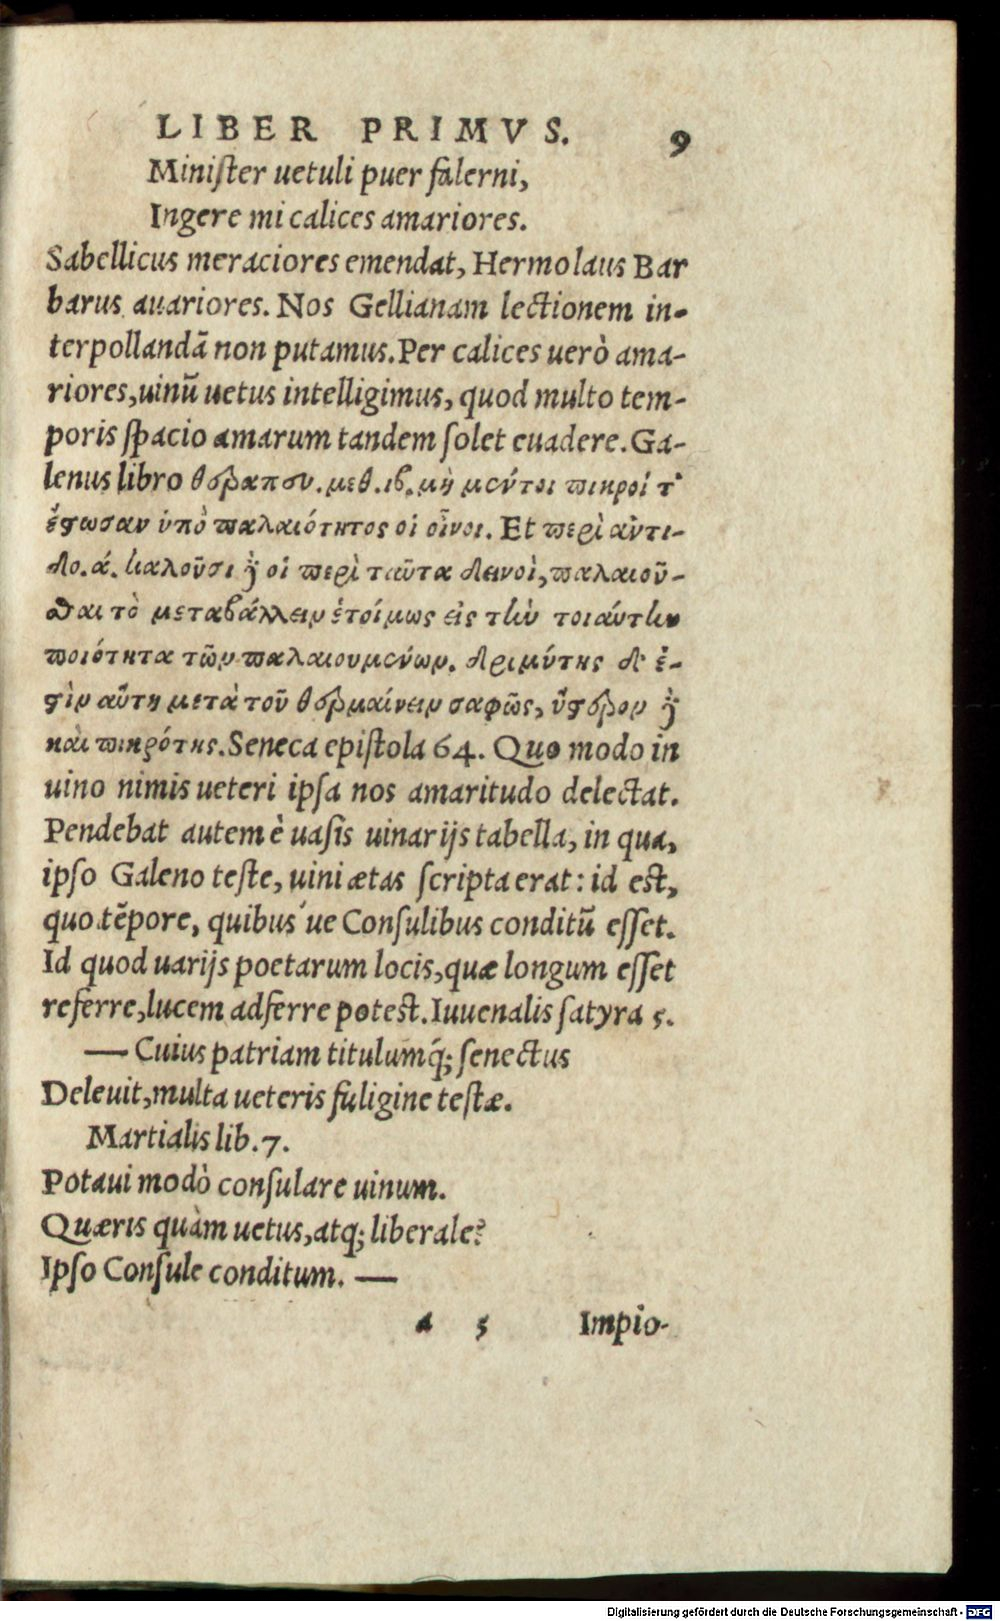 LIBER PRIMVS. 9
Miniſter uetuli puer falerni,
Ingere mi calices amariores.
Sabellicus meraciores emendat, Hermolaus Bar
barus auariores. Nos Gellianam lectionem in-
terpollandã non putamus. Per calices uerò ama-
riores, uinũ uetus intelligimus, quod multo tem-
poris ſpacio amarum tandem ſolet euadere. Ga-
lenus libro θεραπευ. μεθ. ιβ. μὴ μέντοι πικροί τ'
ἔστωσαν ὑπὸ παλαιότητος οἱ οἶνοι. Et περὶ ἀντι-
δο. ά. καλοῦσι γὰρ οἱ περὶ ταῦτα δεινοὶ, παλαιοῦ-
σθαι τὸ μεταβάλλειν ἑτοίμως εἰς τὴν τοιαύτην
ποιότητα τῶν παλαιουμένων. δριμύτης δ' ἐ-
στὶν αὕτη μετὰ τοῦ θερμαίνειν σαφῶς, ὕστερον γὰρ
καὶ πικρότης. Seneca epiſtola 64. Quo modo in
uino nimis ueteri ipſa nos amaritudo delectat.
Pendebat autem è uaſis uinarijs tabella, in qua,
ipſo Galeno teſte, uini ætas ſcripta erat: id eſt,
quo tẽpore, quibus´ue Conſulibus conditũ eſſet.
Id quod uarijs poetarum locis, quæ longum eſſet
referre, lucem adferre poteſt. Iuuenalis ſatyra 5.
— Cuius patriam titulumq́; ſenectus
Deleuit, multa ueteris fuligine teſtæ.
Martialis lib. 7.
Potaui modò conſulare uinum.
Quæris quàm uetus, atq; liberale?
Ipſo Conſule conditum. —
a 5 Impio-
Digitalisierung gefördert durch die Deutsche Forschungsgemeinschaft - DFG